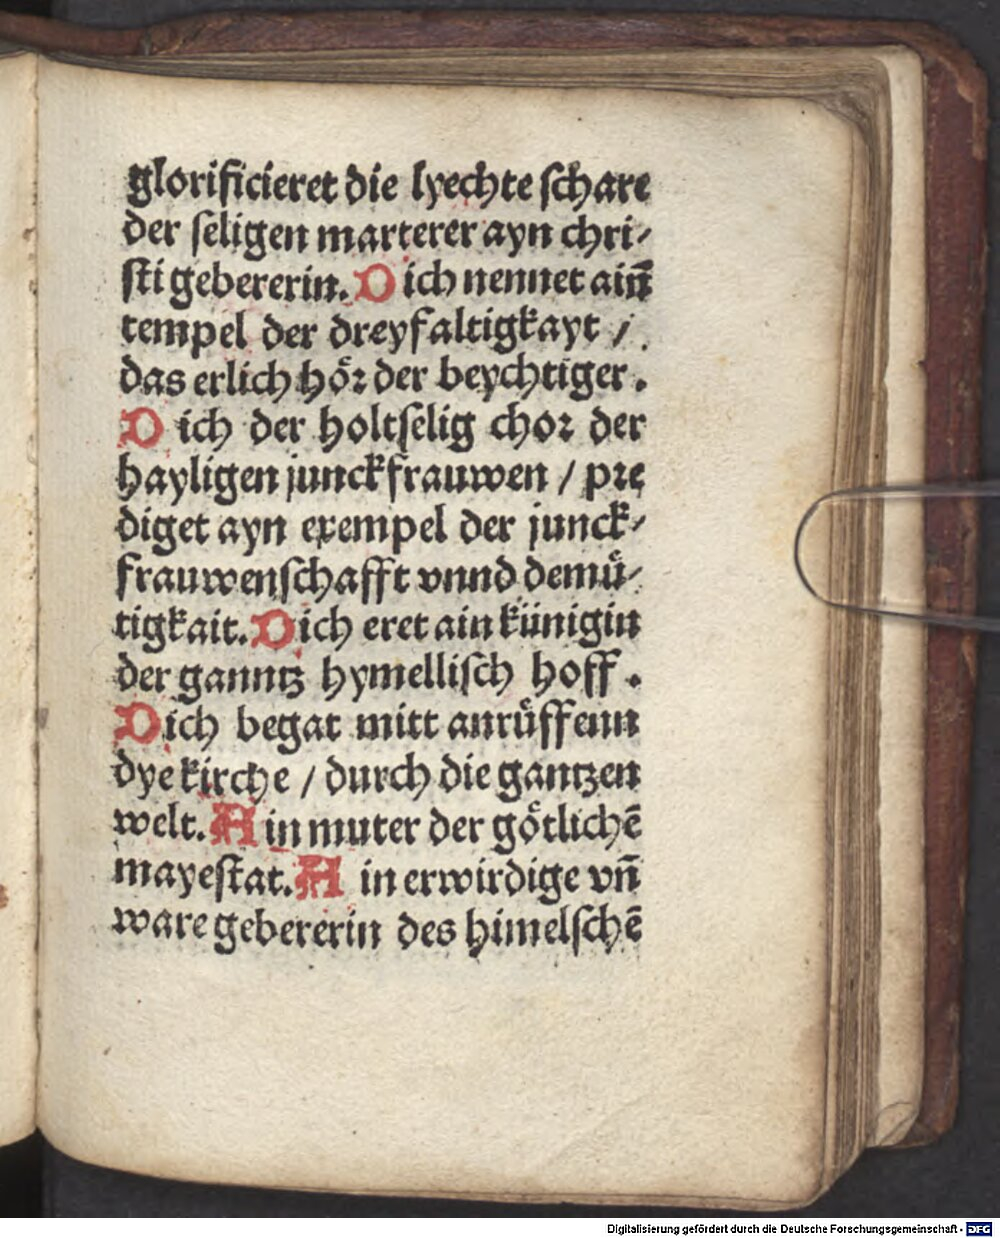 glorificieret die lyechte schare
der seligen marterer ayn chri⸗
sti gebererin. Dich nennet ain̄
tempel der dreyfaltigkayt /.
das erlich hoͤr der beychtiger.
Dich der holtselig chor der
hayligen junckfrauwen / pre
diget ayn exempel der junck⸗
frauwenschafft vnnd demuͤ⸗
tigkait. Dich eret ain künigin
der ganntz hymellisch hoff.
Dich begat mitt anruͤffenn
dye kirche / durch die gantzen
welt. Ain muter der goͤtlichē
mayestat. Ain erwirdige vn̄
ware gebererin des himelschē
Digitalisierung gefördert durch die Deutsche Forschungsgemeinschaft - DFG